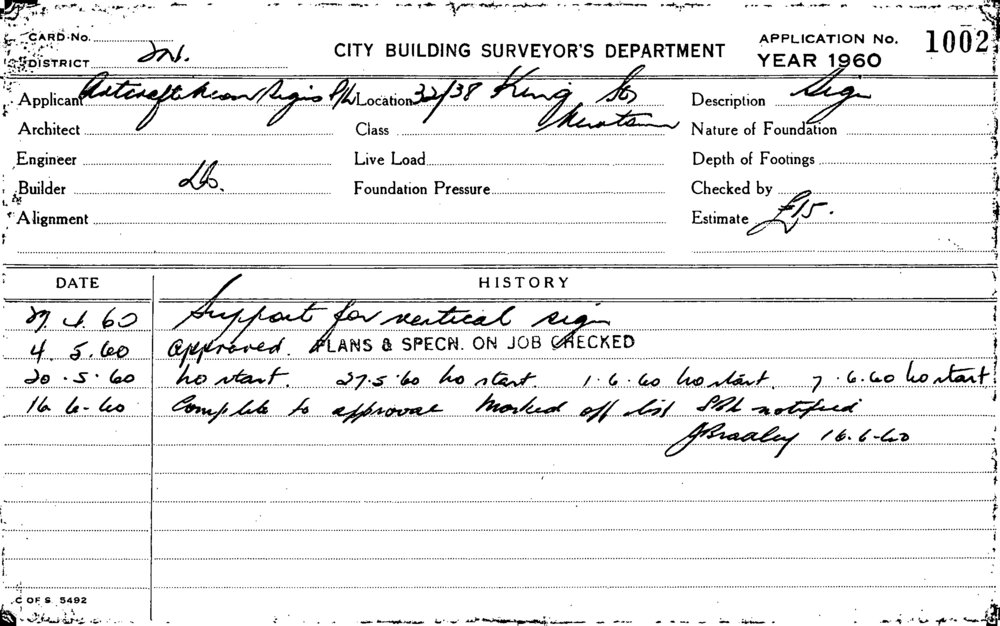 CARD No. CITY BUILDING SURVEYOR'S DEPARTMENT APPLICATION No. 1002
DISTRICT YEAR 1960
Applicant Artcraft Neon Signs P/L Location 32/38 King St Description Sign
Architect Class Newtown Nature of Foundation
Engineer Live Load Depth of Footings
Builder Do. Foundation Pressure Checked by
Alignment Estimate £15.
DATE HISTORY
29. 4. 60 Support for vertical sign
4. 5. 60 Approved. PLANS & SPECN. ON JOB CHECKED
20. 5. 60 No start. 27.5.60 No start. 1.6.60 No start. 7.6.60 No start.
16.6.60 Complete to approval Marked off list notified
JBradley 16.6.60
C OF S 5492